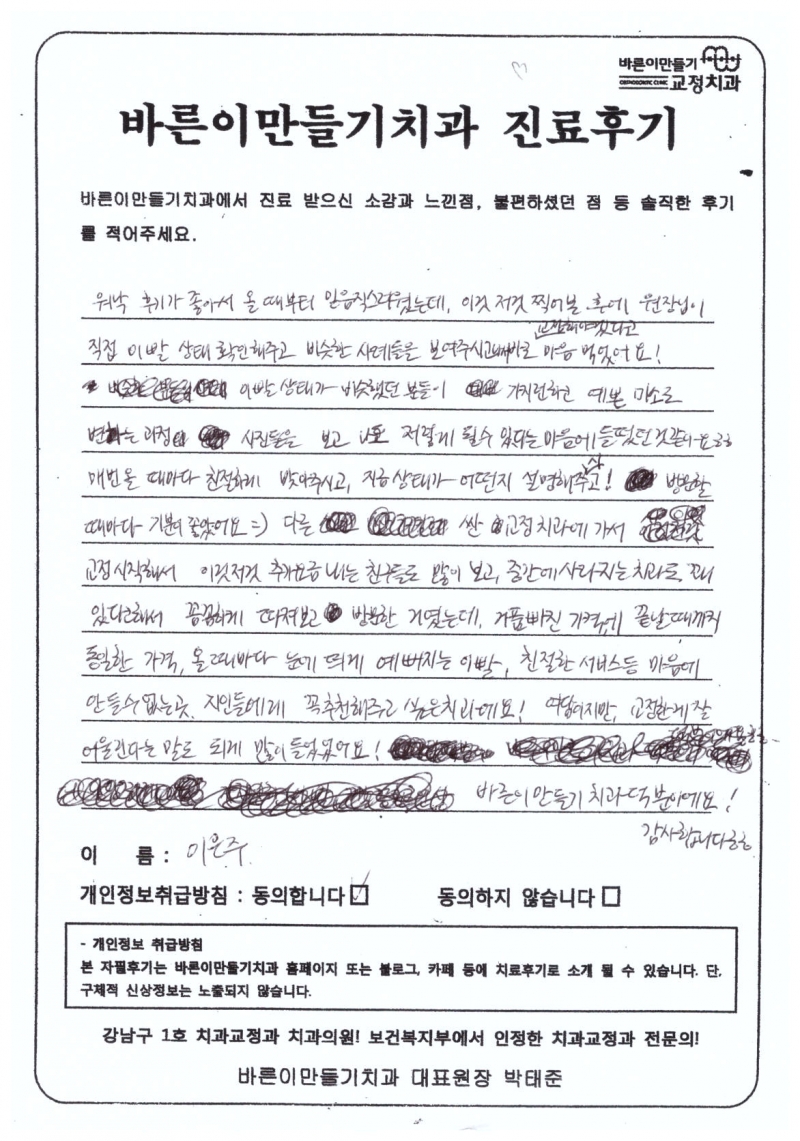 바른이만들기
ORTHODONTIC CLINIC 교정치과
바른이만들기치과 진료후기
바른이만들기치과에서 진료 받으신 소감과 느낀점, 불편하셨던 점 등 솔직한 후기
를 적어주세요.
워낙 후기가 좋아서 올 때부터 믿음직스러웠는데, 이것 저것 찍어본 후에 원장님이
교정해야겠다고
직접 이빨 상태 확인해주고 비슷한 사례들을 보여주시고 마음 먹었어요!
이빨 상태가 비슷했던 분들이 가지런하고 예쁜 미소로
변하는 과정 사진들을 보고 나도 저렇게 될수 있다는 마음에 들떴던 것 같아요ㅎㅎ
매번 올 때마다 친절하게 맞아주시고, 지금 상태가 어떤지 설명해주시고! 방문할
때마다 기분이 좋았어요 =) 다른 싼 교정치과에 가서
교정시작해서 이것저것 추가요금 내는 친구들도 많이 보고, 중간에 사라지는 치과도 꼭
있다고해서 꼼꼼하게 따져보고 방문한 거였는데, 거품빠진 가격에 끝날때까지
동일한 가격, 올때마다 눈에 띄게 예뻐지는 이빨, 친절한 서비스등 마음에
안들수 없는곳. 지인들에게 꼭 추천해주고 싶은 치과에요! 여담이지만, 교정한게 잘
어울린다는 말도 되게 많이 들었었어요!
바른이만들기 치과 덕분이에요!
감사합니다ㅎㅎ
이 름 : 이은주
개인정보취급방침 : 동의합니다 ☑ 동의하지 않습니다 □
- 개인정보 취급방침
본 자필후기는 바른이만들기치과 홈페이지 또는 블로그, 카페 등에 치료후기로 소개 될 수 있습니다. 단,
구체적 신상정보는 노출되지 않습니다.
강남구 1호 치과교정과 치과의원! 보건복지부에서 인정한 치과교정과 전문의!
바른이만들기치과 대표원장 박태준